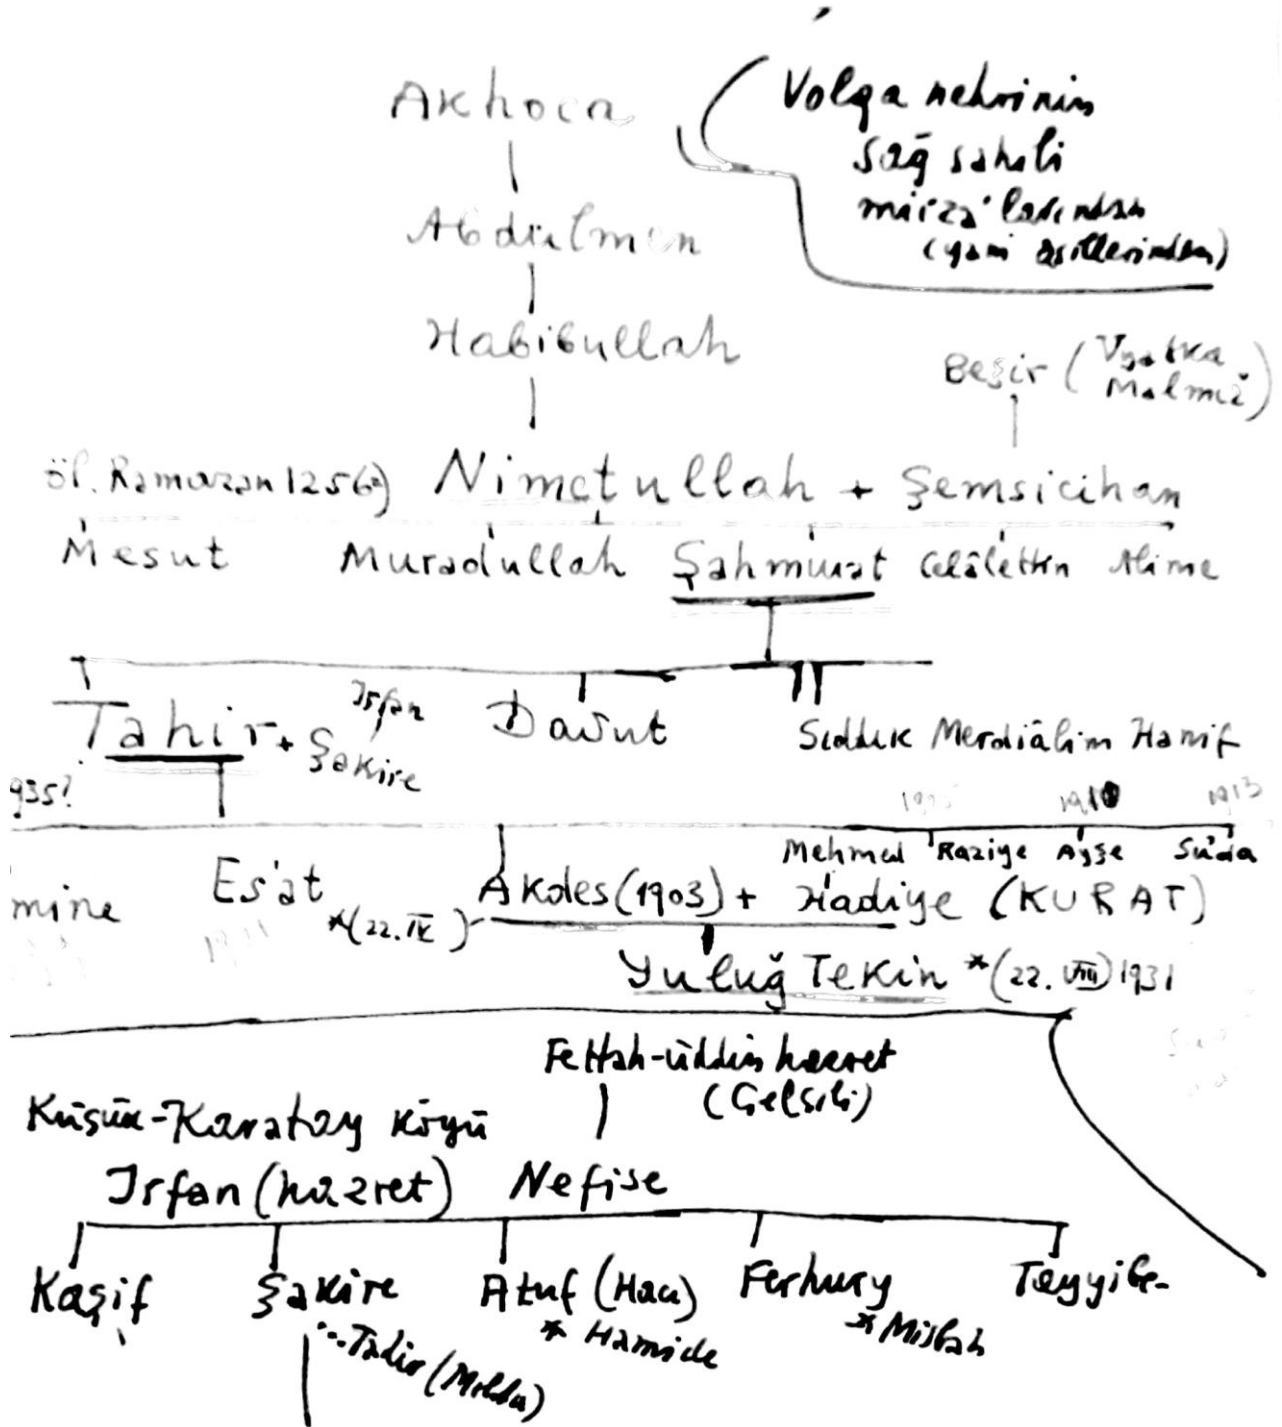 Akhoca
Volga nehrinin
sağ sahili
mirza'larından
(yani asillerinden)
Abdülmen
Habibullah
Beşir (Vyatka
Malmıž)
öl. Ramazan 1256?) Nimetullah + Şemsicihan
Mesut Muradullah Şahmurat Celâlettin Alime
Tahir + Şakire
İrfan
Davut
Sıddık Merdiâlim Hanif
935?
1910 1913
Mehmed Raziye Ayşe Suda
mine Es'at
*(22.IV) Akdes (1903) + Hadiye (KURAT)
Yuluğ Tekin *(22.VIII) 1931
Fettah-üddin hazret
(Gelsili)
Küşük-Karatay köyü
İrfan (hazret) Nefise
Kaşif Şakire Atuf (Hacı) Ferhury Tayyibe
* Hamide
* Misbah
Tahir (Molla)